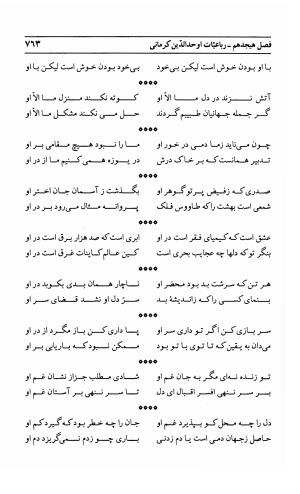 فصل هیجدهم ـ رباعیّات اوحدالدّین کرمانی ۷۶۳
با او بودن خوش است لیکن بی‌خود بی‌خود بودن خوش است لیکن با او
****
آتش نزند در دل ما الّا او کوته نکند منزل ما الّا او
گر جمله جهانیان طبیبم گردند حل می نکند مشکل ما الّا او
****
چون می‌ناید زما دمی در خور او ما را نبود هیچ مقامی بر او
تدبیر همانست که بر خاک درش در یوزه همی کنیم ما از در او
****
صدری که زفیض پرتو گوهر او بگذشت ز آسمان جان اختر او
شمعی است بهشت را که طاووس فلک پروانه مثال می‌رود بر در او
****
عشق است که کیمیای فقر است در او ابری است که صد هزار برق است در او
بنگر تو که دلها چه عجایب بحری است کین عالم کاینات غرق است در او
****
هر تن که سرشت بد بود محضر او ناچار همان بدی بکوبد در او
بنمای کسی را که زاندیشهٔ بد سرّ دل او نشد قضای سر او
****
سر بازی کن اگر تو داری سر او پسا داری کن باز مگرد از در او
می‌دان به یقین که تا توی با تو بود ممکن نبود که باریابی بر او
****
تو زنده نه‌ای مگر به جان غم او شادی مطلب جز از نشان غم او
بر سر ننهی افسر اقبال ای دل تا سر ننهی بر آستان غم او
****
دل را چه محل کو بپذیرد غم او جان را چه خطر بود که گیرد کم او
حاصل زجهان دمی است یا دم زدنی باری چو زدم نمی‌گریزد دم او